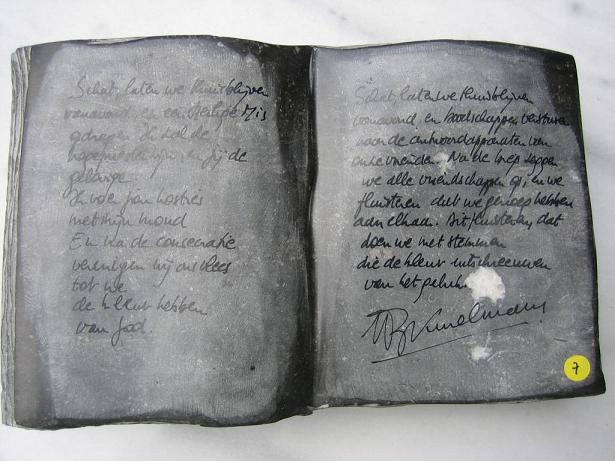 Schat, laten we thuisblijven
vanavond en een Heilige Mis
opdragen. Ik zal de
hogepriester zijn en jij de
gelovige.
Ik voer jou hosties
met mijn mond
En na de consecratie
verenigen wij ons vlees
tot we
de kleur hebben
van God.
Schat, laten we thuisblijven
vanavond, en boodschappen versturen
naar de antwoordapparaten van
onze vrienden. Na de biep zeggen
we alle vriendschappen op, en we
fluisteren dat we genoeg hebben
aan elkaar. Dit fluisteren, dat
doen we met stemmen
die de kleur uitschreeuwen
van het geluk.
7